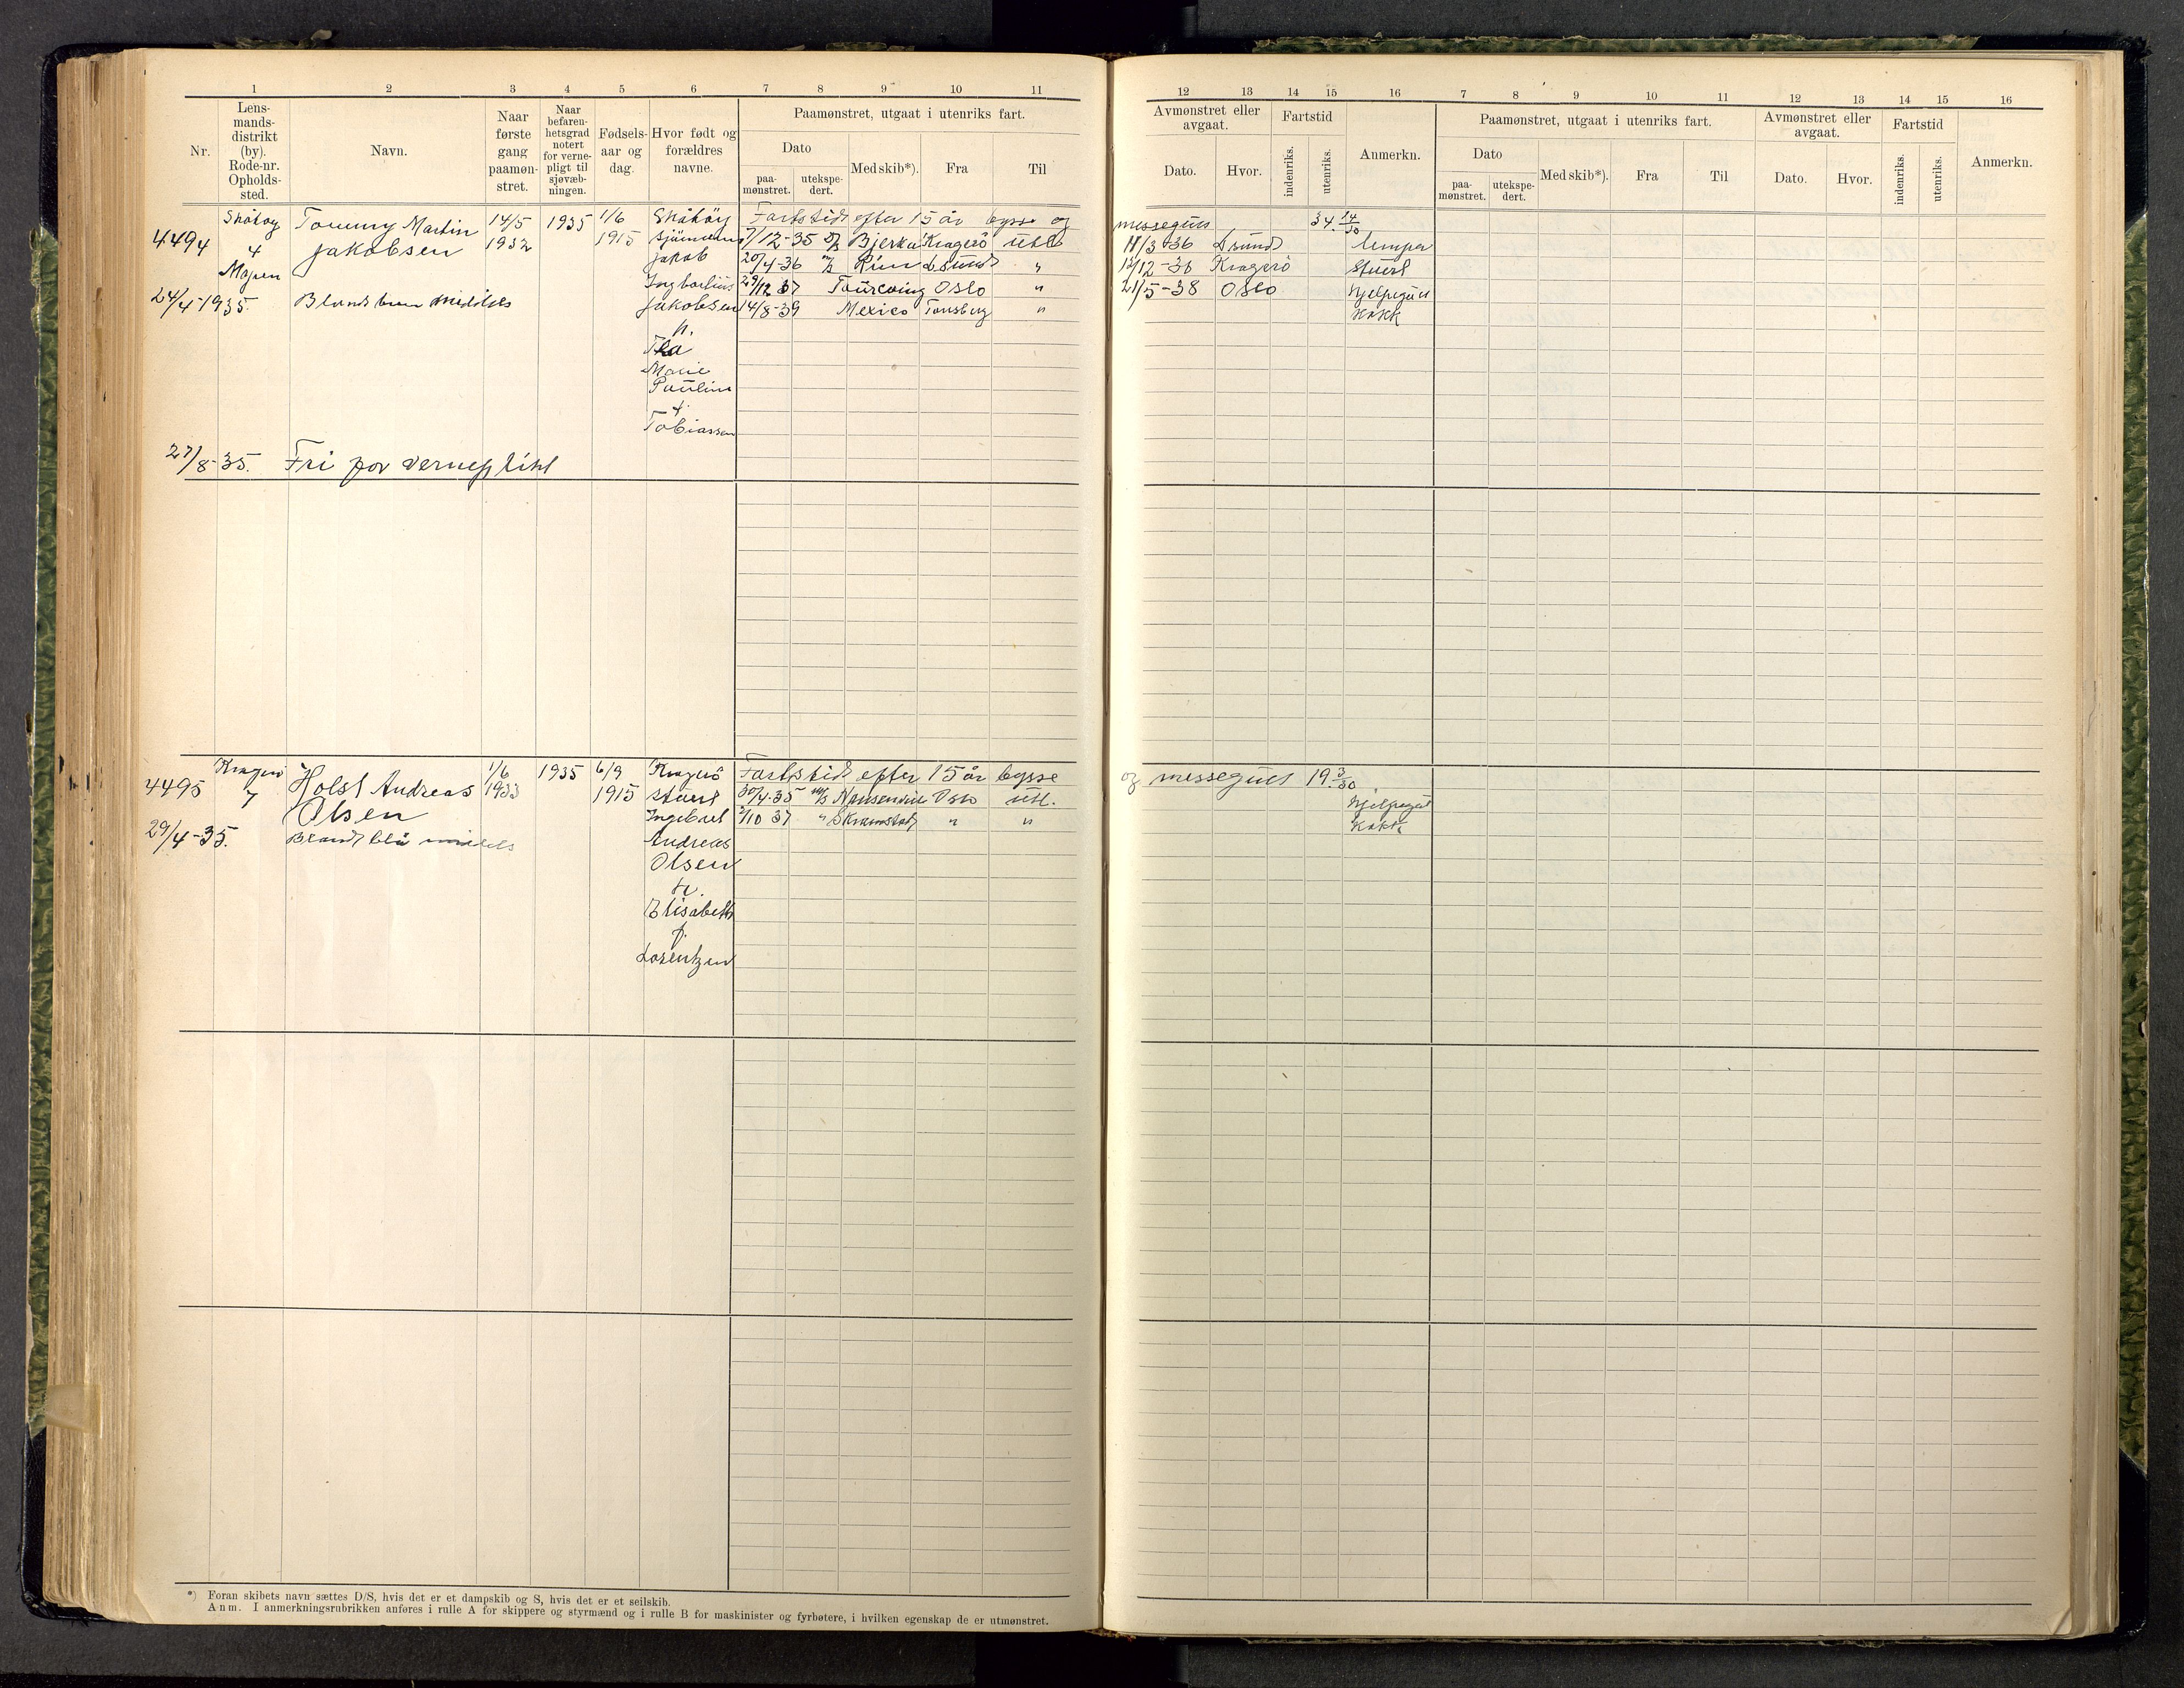 1 2 3 4 5 6 7 8 9 10 11
Nr. Lens-mands-distrikt (by). Rode-nr. Opholds-sted. Navn. Naar første gang paamøn-stret. Naar befaren-hetsgrad notert for verne-pligt til sjøvæb-ningen. Fødsels-aar og dag. Hvor født og forældres navne. Paamønstret, utgaat i utenriks fart.
Dato Med skib*). Fra Til
paa-mønstret. utekspe-dert.
Skåtøy Tommy Martin 14/5 1935 1/6 Skåtöy Fartstid efter 15 år bysse og
4494 4 Jakobsen 1932 1915 sjömann 7/12-35 Bjerka Kragerö Utl
Jakob 20/4-36 L.sund "
Ingbortius 29/12 37 Tourcoing Oslo "
24/4-1935. Jakobsen 14/8-39 Mexico Tønsberg "
h.
Tea
Marie
Pauline
f.
Tobiassen
27/8-35. Fri for verneplikt
Kragerö Holst Andreas 1/6 1935 6/9 Kragerö Fartstid efter 15 år bysse
4495 7 Olsen 1933 1915 stuert 30/4-35 m/s Oslo Utl.
Ingebret /10 37 " " "
29/4-35. Andreas
Olsen
h.
Elisabeth
f.
Lorentzen
*) Foran skibets navn sættes D/S, hvis det er et dampskib og S, hvis det er et seilskib.
Anm. I anmerkningsrubrikken anføres i rulle A for skippere og styrmænd og i rulle B for maskinister og fyrbøtere, i hvilken egenskap de er utmønstret.
12 13 14 15 16 7 8 9 10 11 12 13 14 15 16
Avmønstret eller avgaat. Fartstid Anmerkn. Paamønstret, utgaat i utenriks fart. Avmønstret eller avgaat. Fartstid Anmerkn.
Dato. Hvor. indenriks. utenriks. Dato Med skib*). Fra Til Dato. Hvor. indenriks. utenriks.
paa-mønstret. utekspe-dert.
messegutt 34. 14/30
11/3-36 L.sund lemper
12/12-36 Kragerö Stuert
21/5-38 Oslo hjelpegutt
Kokk
og messegutt 19 3/30
hjelpegut
Kokk